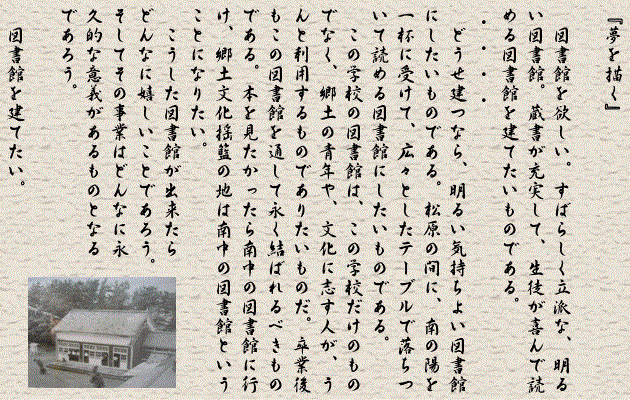 『夢を描く』
図書館を欲しい。すばらしく立派な、明る
い図書館。蔵書が充実して、生徒が喜んで読
める図書館を建てたいものである。
・・・・
どうせ建つなら、明るい気持ちよい図書館
にしたいものである。松原の間に、南の陽を
一杯に受けて、広々としたテーブルで落ちつ
いて読める図書館にしたいものである。
この学校の図書館は、この学校だけのもの
でなく、郷土の青年や、文化に志す人が、う
んと利用するものでありたいものだ。卒業後
もこの図書館を通して永く結ばれるべきもの
である。本を見たかったら南中の図書館に行
け、郷土文化揺籃の地は南中の図書館という
ことになりたい。
こうした図書館が出来たら
どんなに嬉しいことであろう。
そしてその事業はどんなに永
久的な意義があるものとなる
であろう。
図書館を建てたい。